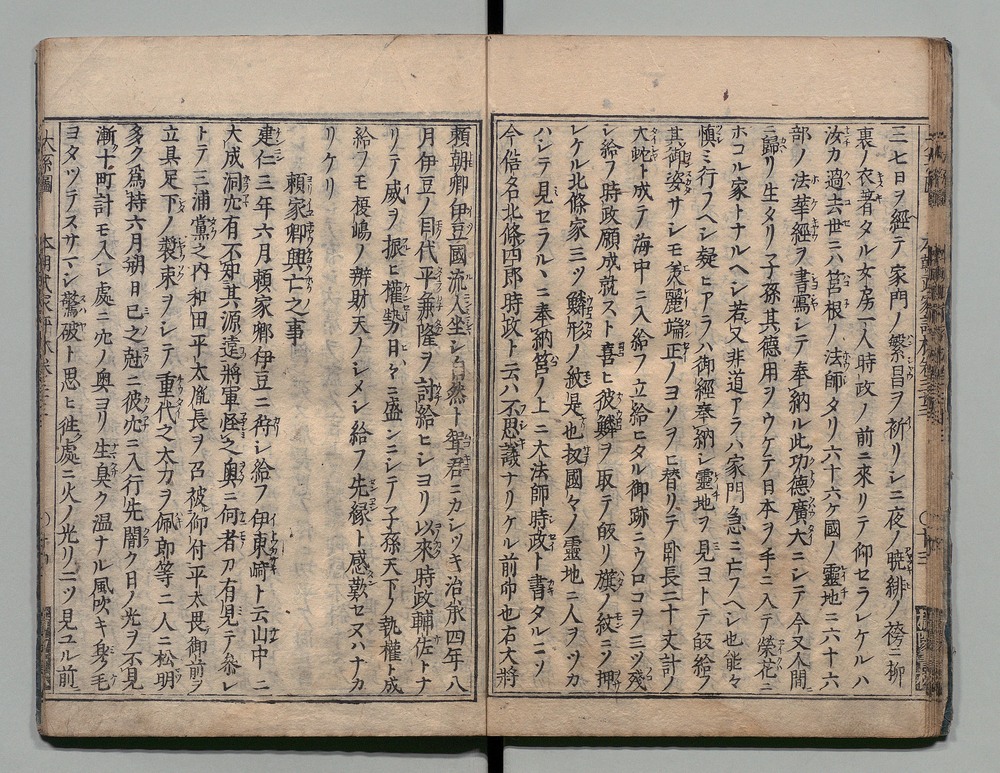 三七日ヲ經テ家門ノ繁昌ヲ祈リシニ夜ノ曉緋ノ袴ニ柳
裏ノ衣著タル女房一人時政ノ前ニ來リテ仰セラレケルハ
汝カ過去世ニハ筥根ノ法師タリ六十六ケ國ノ靈地ニ六十六
部ノ法華經ヲ書寫シテ奉納ル此功德廣大ニシテ今又人間
ニ歸リ生タリ子孫其德用ヲウケテ日本ヲ手ニ入テ榮花ニ
ホコル家トナルヘシ若又非道アラハ家門急ニ亡フヘシ也能々
愼ミ行フヘシ疑ヒアラハ御經奉納シ靈地ヲ見ヨトテ皈給フ
其御姿サシモ美麗端正ノヨソヲヒ替リテ卧長二十丈計ノ
大蛇ト成テ海中ニ入給フ立給ヒタル御跡ニウロコヲ三ツ殘
シ給フ時政願成就スト喜ヒ彼鱗ヲ取テ皈リ旗ノ紋ニソ押
レケル北條家三ツ鱗形ノ紋是也扨國々ノ靈地ニ人ヲツカ
ハシテ見セラルヽニ奉納筥ノ上ニ大法師時政ト書タルニソ
今俗名北條四郎時政ト云ハ不思議ナリケル前命也右大將
頼朝卿伊豆國流人坐シ自然ト聟君ニカシツキ治承四年八
月伊豆ノ目代平兼隆ヲ討給ヒシヨリ以來時政輔佐トナ
リテ威ヲ振ヒ權勢日々ニ盛ンニシテ子孫天下ノ執權ト成
給フモ榎嶋ノ辨財天ノシメシ給フ先縁ト感歎セヌハナカ
リケリ
頼家卿興亡之事
建仁三年六月頼家卿伊豆ニ狩シ給フ伊東﨑ト云山中ニ
大成洞穴有不知其源遠將軍怪之奥ニ何者カ有見テ參レ
トテ三浦黨之内和田平太胤長ヲ召被仰付平太畏御前ヲ
立具足下ノ裝束ヲシテ重代之太刀ヲ佩郎等二人ニ松明
多ク爲持六月朔日巳之尅ニ彼穴ニ入行先闇ク日ノ光ヲ不見
漸十町計モ入シ處ニ穴ノ奥ヨリ生臭ク温ナル風吹キ身ノ毛
ヨタツテスサマシ驚破ト思ヒ徃處ニ火ノ光リ二ツ見ユル前